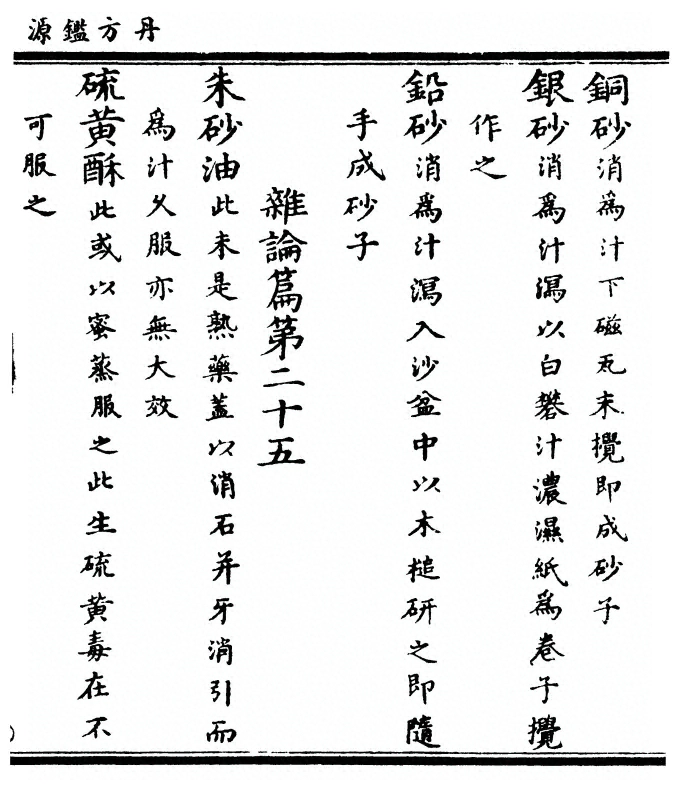 丹方鑑源
銅砂消爲汁下磁瓦末攪即成砂子
銀砂消爲汁瀉以白礬汁濃濕紙爲卷子攪
作之
鉛砂消爲汁瀉入沙盆中以木槌研之即隨
手成砂子
雜論篇第二十五
朱砂油此未是熟藥蓋以消石并牙消引而
爲汁久服亦無大效
硫黄酥此或以蜜蒸服之此生硫黄毒在不
可服之